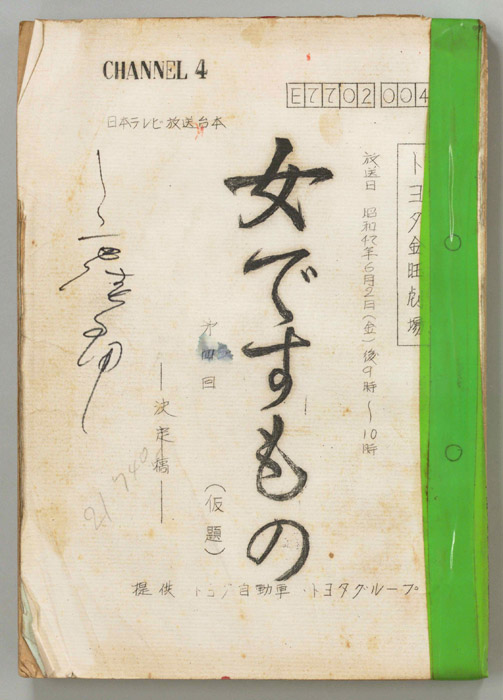 CHANNEL 4
E7702004
日本テレビ放送台本
トヨタ金曜劇場
放送日 昭和47年6月2日(金)後9時～10時
女ですもの
(仮題)
第四回
―決定稿―
21740
提供 トヨタ自動車・トヨタグループ